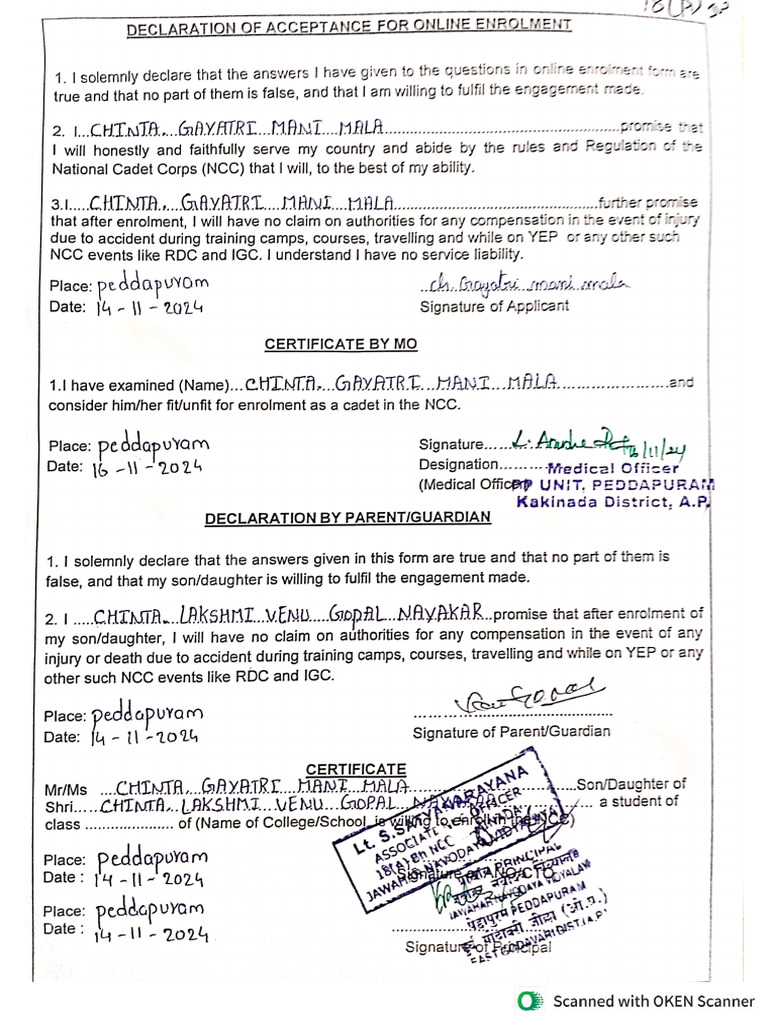 16(A) JP
DECLARATION OF ACCEPTANCE FOR ONLINE ENROLMENT
1. I solemnly declare that the answers I have given to the questions in online enrolment form are
true and that no part of them is false, and that I am willing to fulfil the engagement made.
2. I...CHINTA. GAYATRI MANI MALA...promise that
I will honestly and faithfully serve my country and abide by the rules and Regulation of the
National Cadet Corps (NCC) that I will, to the best of my ability.
3.I....CHINTA. GAYATRI MANI MALA...further promise
that after enrolment, I will have no claim on authorities for any compensation in the event of injury
due to accident during training camps, courses, travelling and while on YEP or any other such
NCC events like RDC and IGC. I understand I have no service liability.
Place: peddapuram
ch. Gayatri mani mala
Date: 14-11-2024
Signature of Applicant
CERTIFICATE BY MO
1.I have examined (Name)...CHINTA. GAYATRI MANI MALA...and
consider him/her fit/unfit for enrolment as a cadet in the NCC.
Place: peddapuram
Signature...... 16/11/24
Date: 16-11-2024
Designation.......... Medical Officer
(Medical Officer PP UNIT, PEDDAPURAM
Kakinada District, A.P.
DECLARATION BY PARENT/GUARDIAN
1. I solemnly declare that the answers given in this form are true and that no part of them is
false, and that my son/daughter is willing to fulfil the engagement made.
2. I .....CHINTA. LAKSHMI VENU GOPAL NAYAKAR..promise that after enrolment of
my son/daughter, I will have no claim on authorities for any compensation in the event of any
injury or death due to accident during training camps, courses, travelling and while on YEP or any
other such NCC events like RDC and IGC.
Place: peddapuram
Venu Gopal
Date: 14-11-2024
Signature of Parent/Guardian
CERTIFICATE
Mr/Ms ...CHINTA. GAYATRI MANI MALA...Son/Daughter of
Shri.....CHINTA. LAKSHMI VENU GOPAL NAYAKAR... a student of
class ...................... of (Name of College/School is willing to enroll in the NCC)
Lt. S.SATYANARAYANA
ASSOCIATE NCC OFFICER
18(A) Bn NCC KAKINADA
JAWAHAR NAVODAYA VIDYALAYA
Place: peddapuram
Date : 14-11-2024
Signature of ANO/CTO
PRINCIPAL
जवाहर नवोदय विद्यालय
JAWAHAR NAVODAYA VIDYALAYA
PEDDAPURAM
EAST GODAVARI DIST.(A.P.)
Place: peddapuram
Date : 14-11-2024
Signature of Principal
Scanned with OKEN Scanner